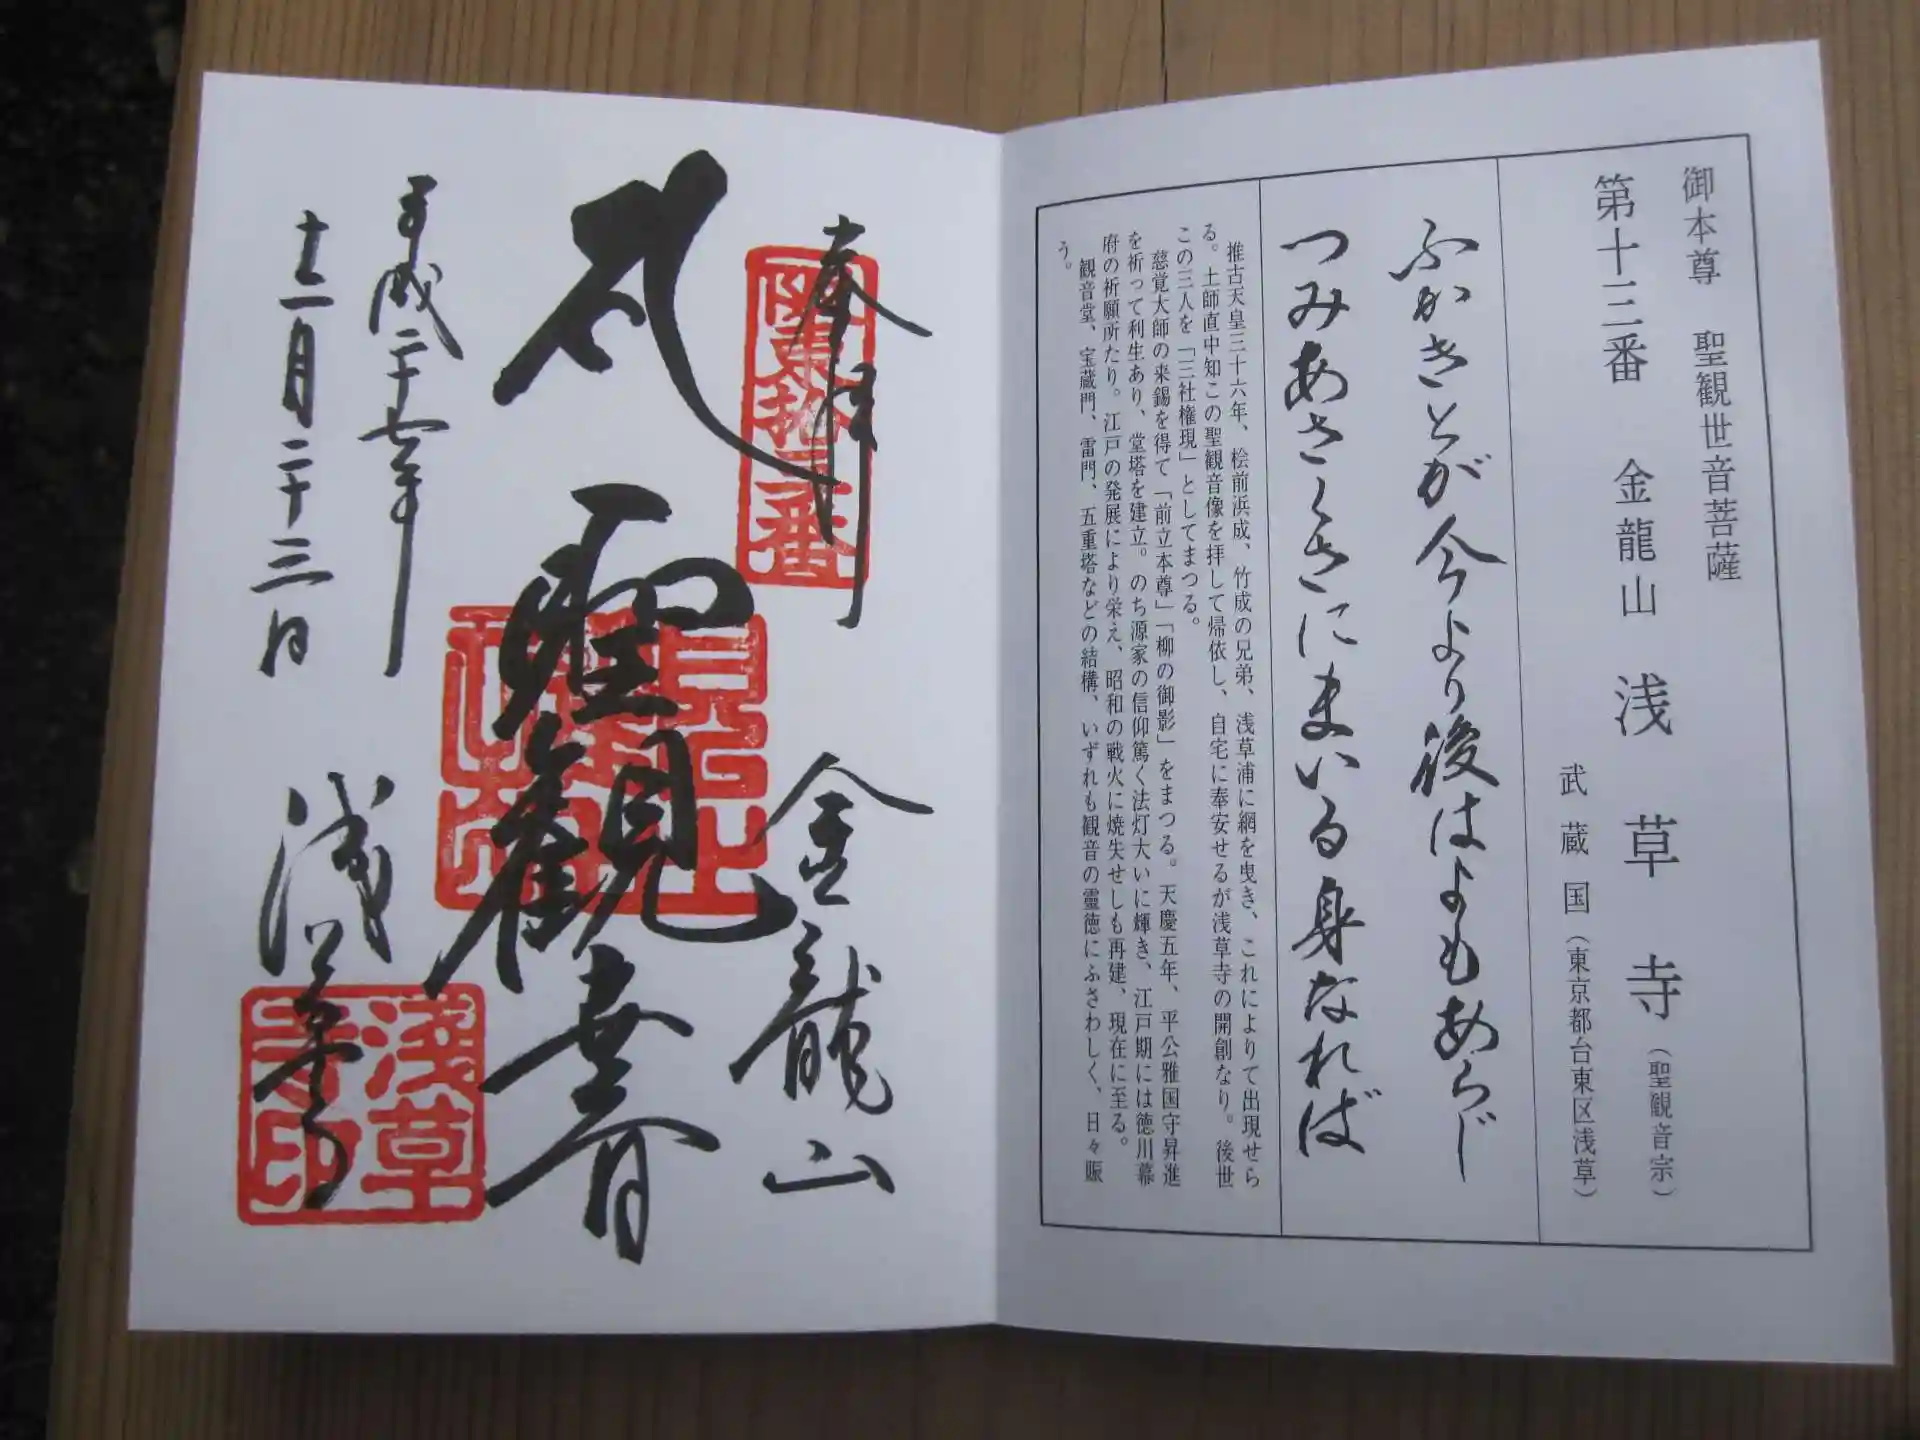 御本尊　聖観世音菩薩
第十三番　金龍山　浅草寺（聖観音宗）
武蔵国（東京都台東区浅草）
ふかきとが今より後はよもあらじ
つみあさくさにまいる身なれば
推古天皇三十六年、桧前浜成、竹成の兄弟、浅草浦に網を曳き、これによりて出現せら
る。土師直中知この聖観音像を拝して帰依し、自宅に奉安せるが浅草寺の開創なり。後世
この三人を「三社権現」としてまつる。
慈覚大師の来錫を得て「前立本尊」「柳の御影」をまつる。天慶五年、平公雅国守昇進
を祈って利生あり、堂塔を建立。のち源家の信仰篤く法灯大いに輝き、江戸期には徳川幕
府の祈願所たり。江戸の発展により栄え、昭和の戦火に焼失せしも再建、現在に至る。
観音堂、宝蔵門、雷門、五重塔などの結構、いずれも観音の霊徳にふさわしく、日々賑
う。
奉拝
関東拾三番
金龍山
聖観世音
平成二十七年
十二月二十三日
浅草寺
浅草寺印